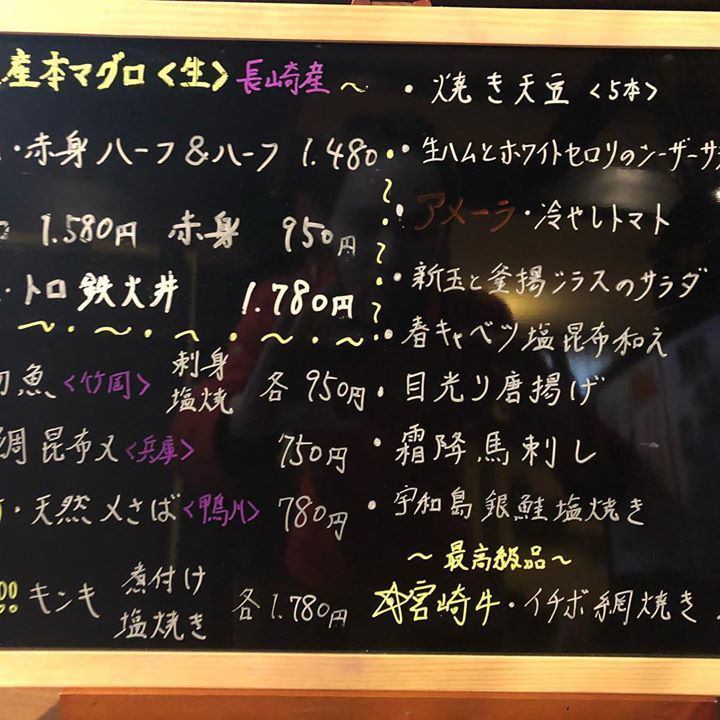 産本マグロ〈生〉長崎産 〜
・赤身ハーフ&ハーフ 1.480
1.580円 赤身 950円
・トロ鉄火丼 1.780円
魚〈竹岡〉 刺身 塩焼 各 950円
昆布〆〈兵庫〉 750円
・天然〆さば〈鴨川〉 780円
キンキ 煮付け 塩焼き 各 1.780円
・焼き天豆〈5本〉
・生ハムとホワイトセロリのシーザーサ
・アメーラ・冷やしトマト
・新玉と釜揚シラスのサラダ
・春キャベツ塩昆布和え
・目光り唐揚げ
・霜降馬刺し
・宇和島銀鮭塩焼き
〜最高級品〜
☆宮崎牛・イチボ網焼き